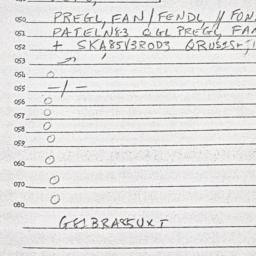 050 PREGL, FAN/FENDL // FON
051 PATELN83 QGL PREGL, FAN
052 + SKA85V3ROD3
053
054 O
055 -/-
056 O
057 O
058 O
059 O
060 O
070 O
080 O
GE1BRA85UXT